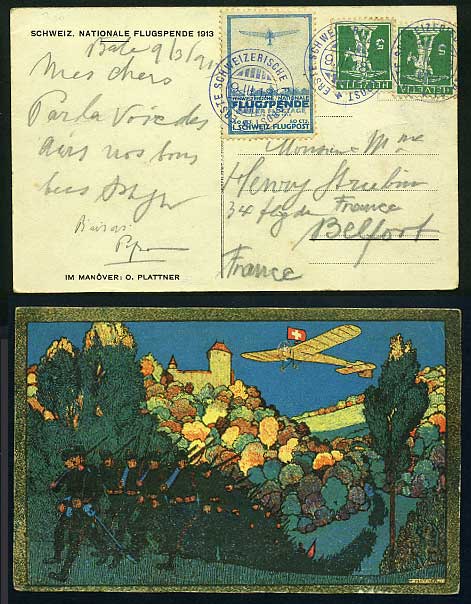 SCHWEIZ. NATIONALE FLUGSPENDE 1913
Bale 9/3/
Mes chers
Par la Voie des
airs nos bons
Baisers
IM MANÖVER: O. PLATTNER
SCHWEIZERISCHE NATIONALE
FLUGSPENDE
50 CTS.
I. SCHWEIZ. FLUGPOST
ERSTE SCHWEIZERISCHE
ERSTE SCHWEIZERISCHE
5
HELVETIA
5
HELVETIA
Monsieur Mme
Henry
34 fbg de France
Belfort
France